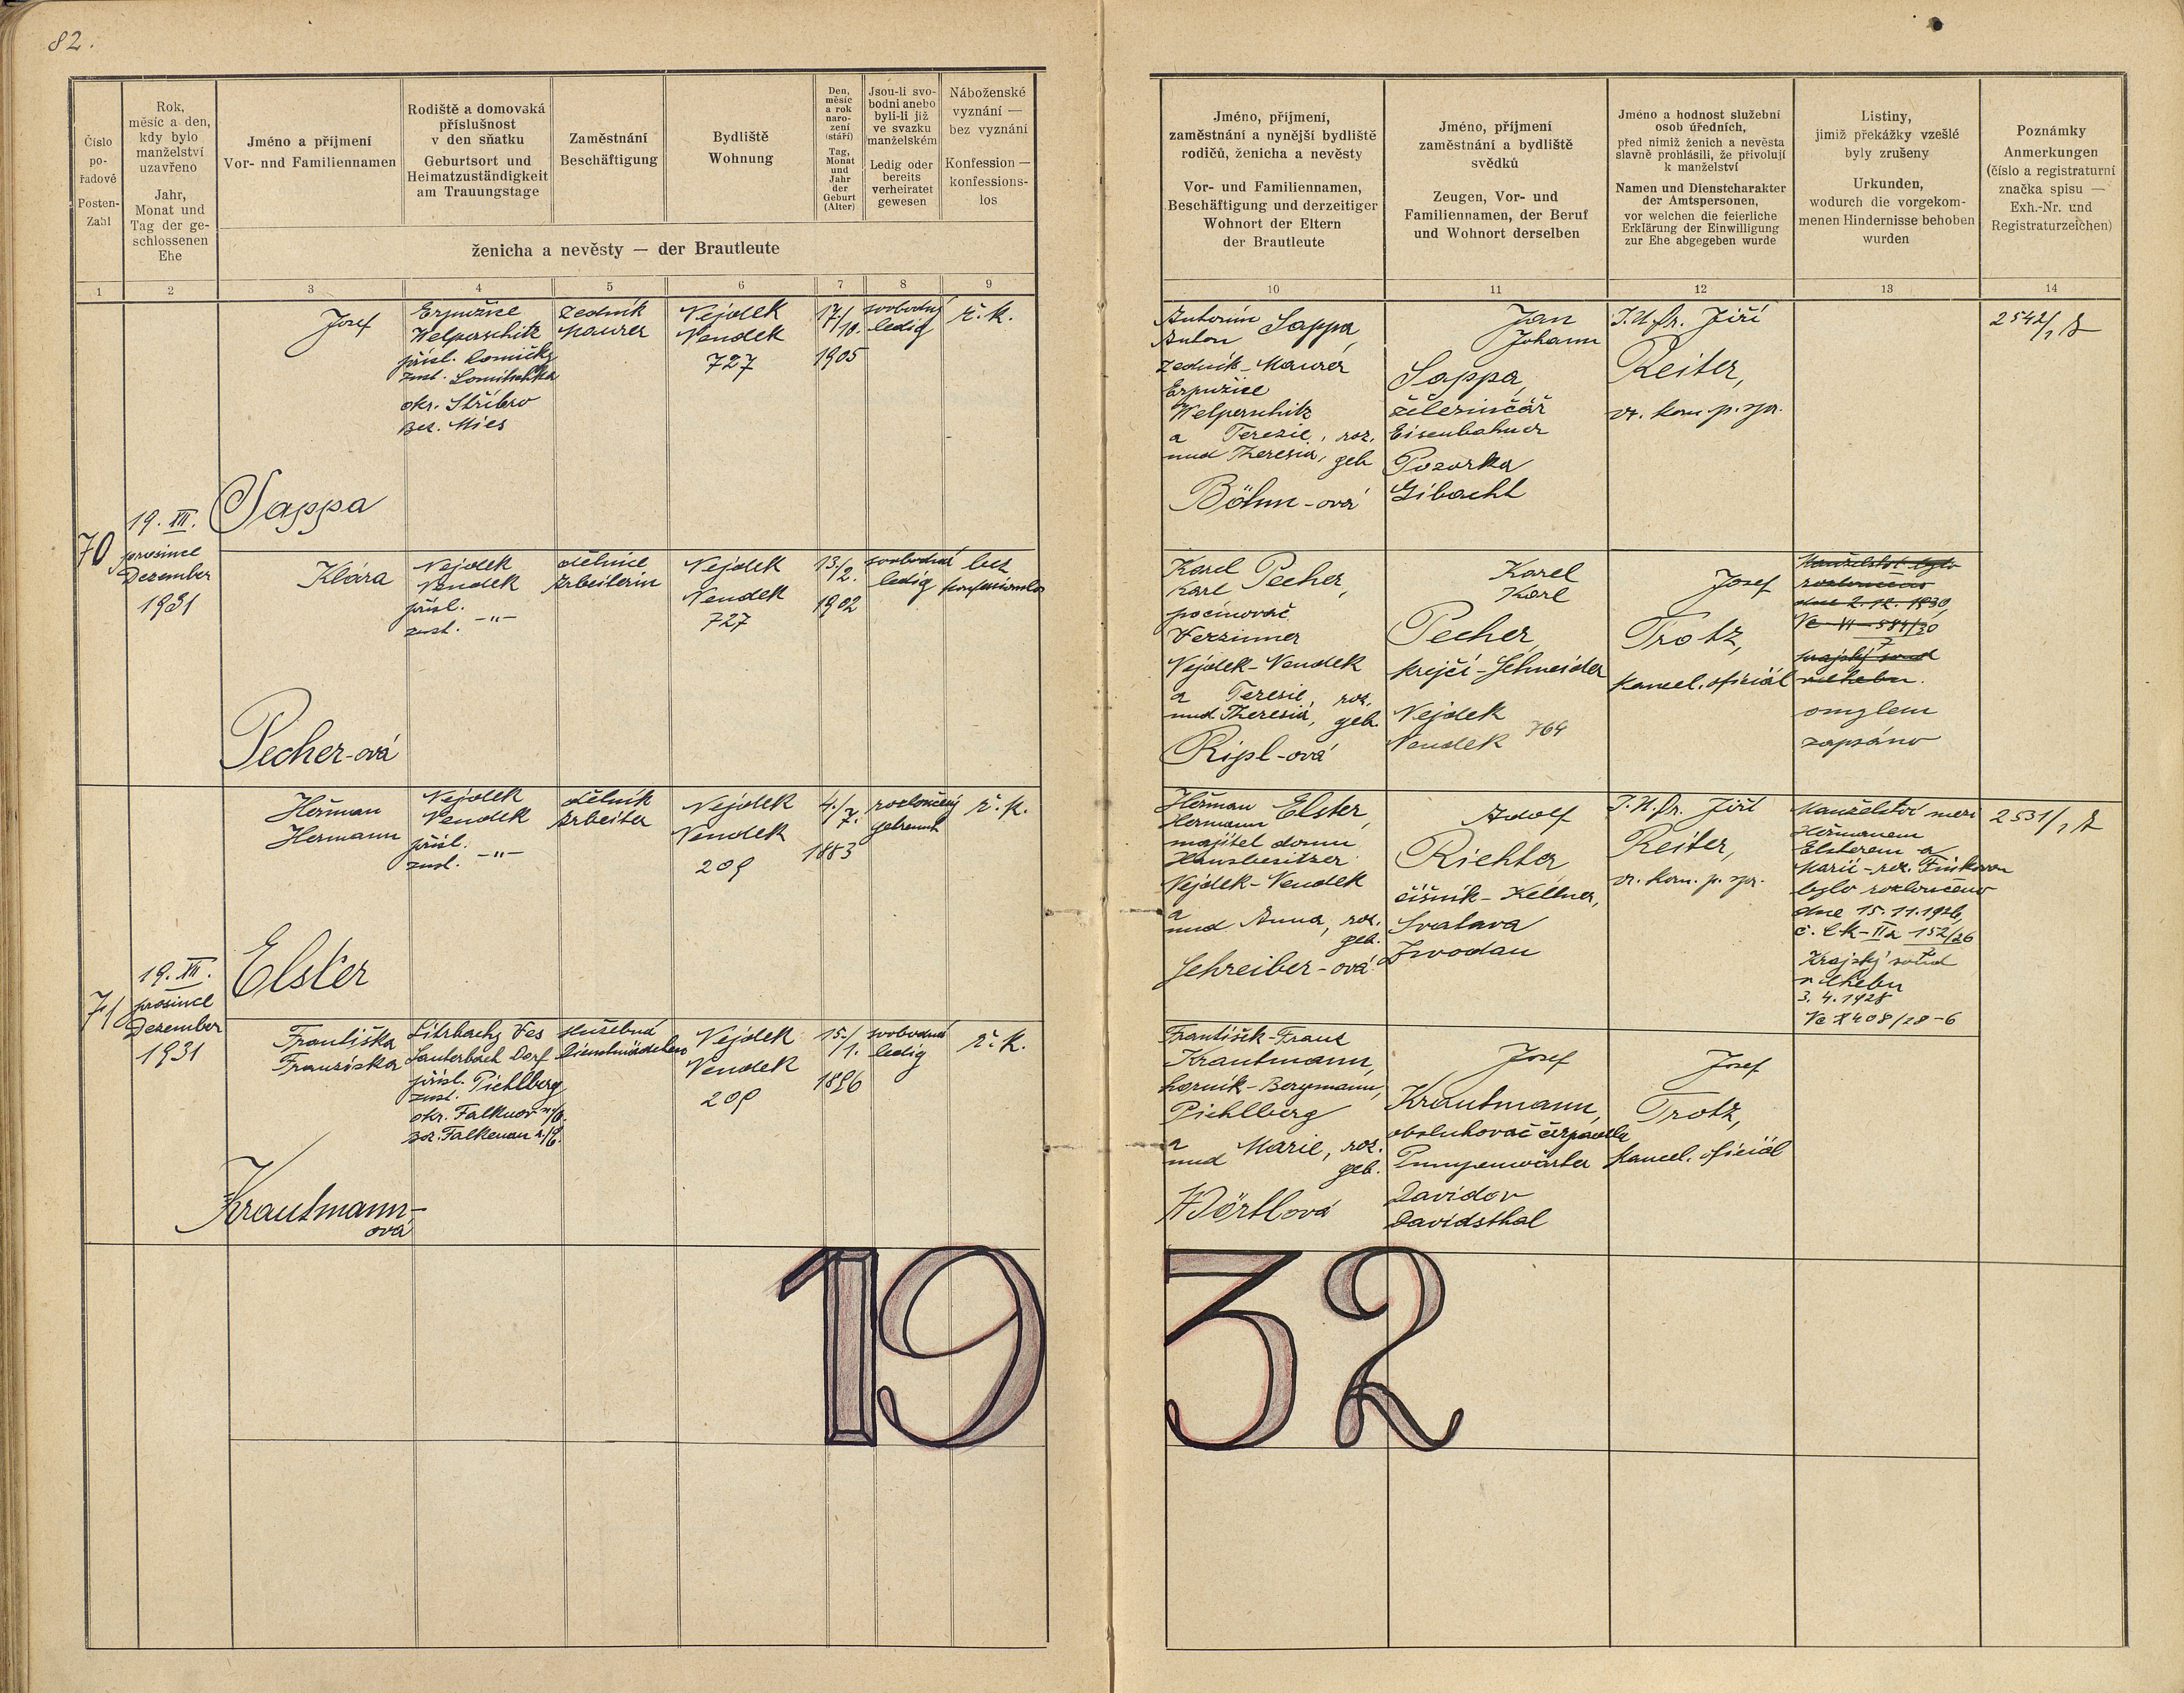 82.
Číslo
po-
řadové
Posten-
Zahl
Rok,
měsíc a den,
kdy bylo
manželství
uzavřeno
Jahr,
Monat und
Tag der ge-
schlossenen
Ehe
Jméno a příjmení
Vor- und Familiennamen
Rodiště a domovská
příslušnost
v den sňatku
Geburtsort und
Heimatzuständigkeit
am Trauungstage
Zaměstnání
Beschäftigung
Bydliště
Wohnung
Den,
měsíc
a rok
naro-
zení
(stáří)
Tag,
Monat
und
Jahr
der
Geburt
(Alter)
Jsou-li svo-
bodni anebo
byli-li již
ve svazku
manželském
Ledig oder
bereits
verheiratet
gewesen
Náboženské
vyznání —
bez vyznání
Konfession —
konfessions-
los
ženicha a nevěsty — der Brautleute
Jméno, příjmení,
zaměstnání a nynější bydliště
rodičů, ženicha a nevěsty
Vor- und Familiennamen,
Beschäftigung und derzeitiger
Wohnort der Eltern
der Brautleute
Jméno, příjmení
zaměstnání a bydliště
svědků
Zeugen, Vor- und
Familiennamen, der Beruf
und Wohnort derselben
Jméno a hodnost služební
osob úředních,
před nimiž ženich a nevěsta
slavně prohlásili, že přivolují
k manželství
Namen und Dienstcharakter
der Amtspersonen,
vor welchen die feierliche
Erklärung der Einwilligung
zur Ehe abgegeben wurde
Listiny,
jimiž překážky vzešlé
byly zrušeny
Urkunden,
wodurch die vorgekom-
menen Hindernisse behoben
wurden
Poznámky
Anmerkungen
(číslo a registraturní
značka spisu —
Exh.-Nr. und
Registraturzeichen)
1 2 3 4 5 6 7 8 9 10 11 12 13 14
70
19. XII.
prosinec
Dezember
1931
Josef
Sappa
Erpužice
Welperschitz
přísl. Lomičky
zust. Lomitschka
okr. Stříbro
Bez. Mies
zedník
Maurer
Nejdek
Neudek
727
17./
10.
1905
svobodný
ledig
ř. k.
Antonín Sappa,
Anton
zedník - Maurer
Erpužice
Welperschitz
a Terezie, roz.
und Theresia, geb.
Böhm-ová
Jan
Johann
Sappa,
železničář
Eisenbahner
Pozorka
Gibacht
J.U.Dr. Jiří
Reiter,
vr. kom. p. spr.
2542/1
Klára
Pecher-ová
Nejdek
Neudek
přísl.
zust. -"-
dělnice
Arbeiterin
Nejdek
Neudek
727
13./
2.
1902
svobodná
ledig
bez
konfessionslos
Karel Pecher,
Karl
pocínovač
Verzinner
Nejdek-Neudek
a Terezie, roz.
und Theresia, geb.
Ripl-ová
Karel
Karl
Pecher,
krejčí-Schneider
Nejdek
Neudek 764
Josef
Trotz,
kancel. oficiál
Manželství bylo
rozloučeno
dne 2.12.1930,
krajský soud
v Chebu.
omylem
zapsáno
71
19. XII.
prosinec
Dezember
1931
Heřman
Hermann
Elster
Nejdek
Neudek
přísl.
zust. -"-
dělník
Arbeiter
Nejdek
Neudek
209
4./
7.
1883
rozloučený
getrennt
ř. k.
Heřman Elster,
Hermann
majitel domu
Hausbesitzer
Nejdek-Neudek
a
und Anna, roz.
geb.
Schreiber-ová
Adolf
Richter
číšník - Kellner,
Svatava
Zwodau
J.U.Dr. Jiří
Reiter,
vr. kom. p. spr.
Manželství mezi
Heřmanem
Elsterem a
Marií - roz.
bylo rozloučeno
dne 15.11.1926,
č. Ck-IIa 152/26
Krajský soud
v Chebu
3. 4. 1928
408/28-6
2531/1
Františka
Franziska
Krautmann-
ová
Litrbachy Ves
Lauterbach Dorf
přísl. Pichlberg
zust.
okr. Falknov n/O.
Bez. Falkenau a./E.
služebná
Dienstmädchen
Nejdek
Neudek
209
15./
1.
1896
svobodná
ledig
ř. k.
František-Franz
Krautmann,
horník-Bergmann,
Pichlberg
a
und Marie, roz.
geb.
Wörtlová
Josef
Krautmann,
obsluhovač čerpadla
Pumpenwärter
Davidov
Davidsthal
Josef
Trotz,
kancel. oficiál
1932